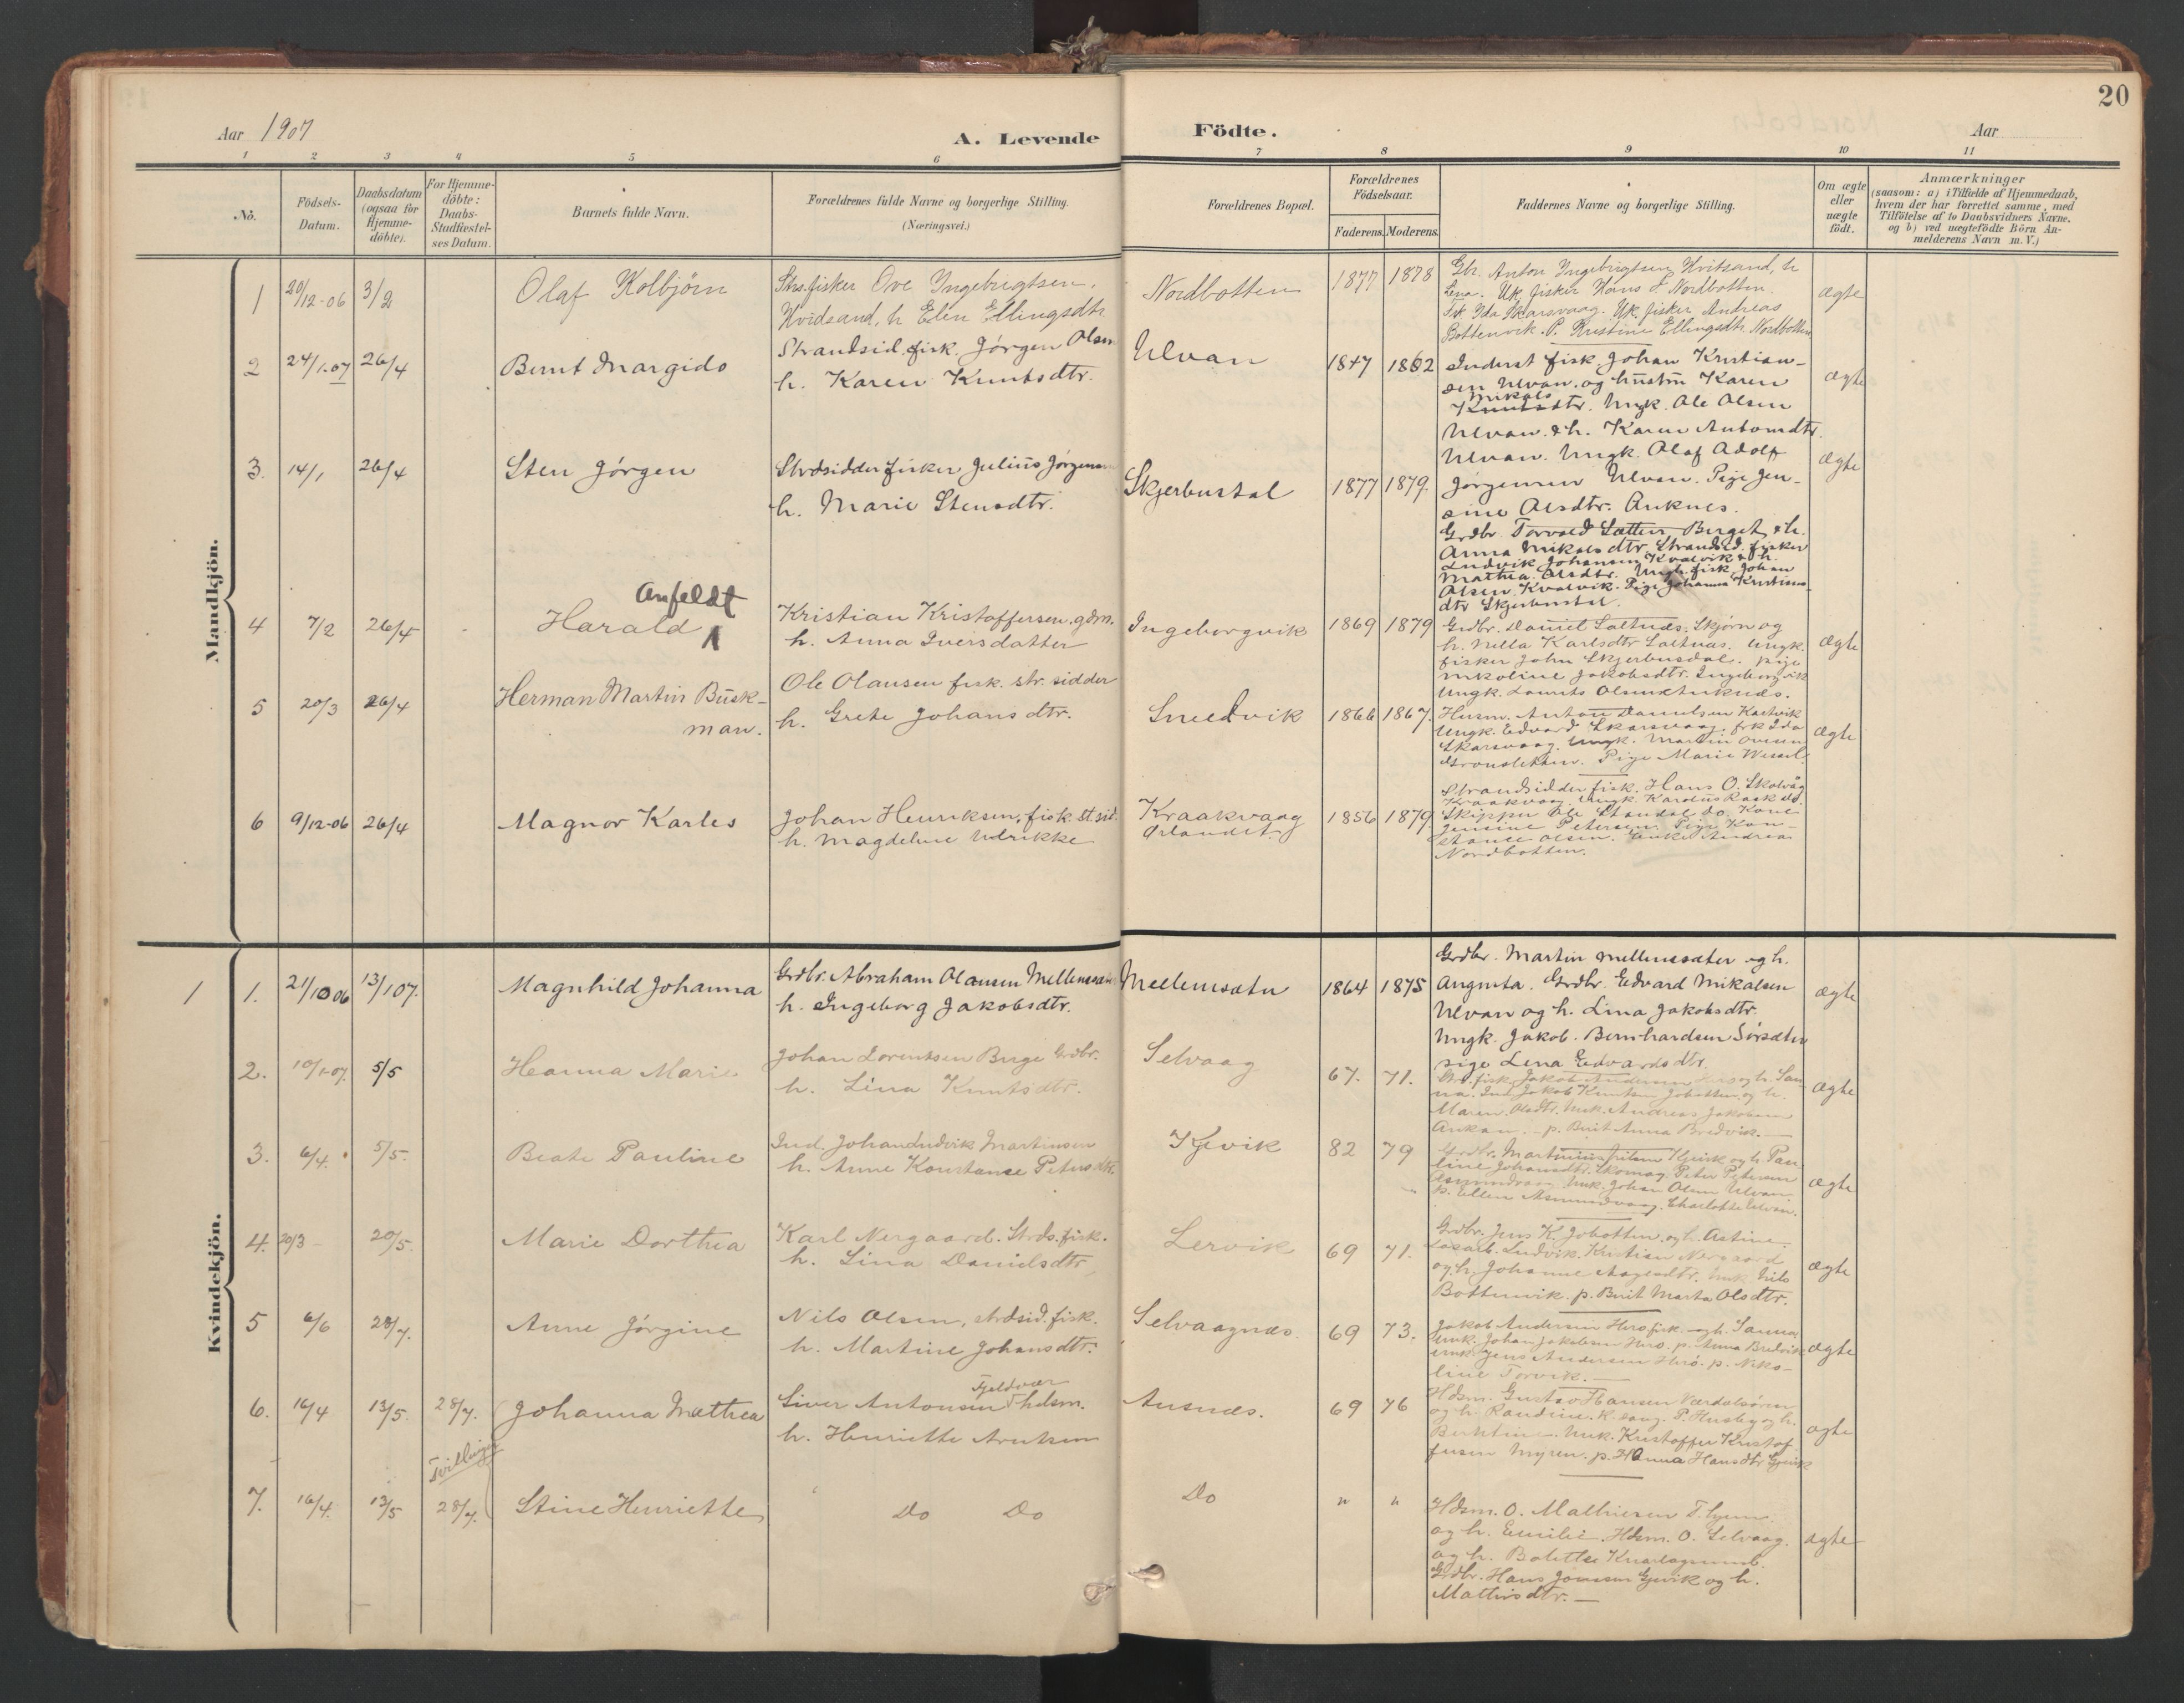 20
Aar 1907
A. Levende Födte.
Aar
1 2 3 4 5 6 7 8 9 10 11
No. Födsels-Datum. Daabsdatum (ogsaa for Hjemme-döbte). For Hjemme-döbte: Daabs-Stadfæstel-ses Datum. Barnets fulde Navn. Forældrenes fulde Navne og borgerlige Stilling. (Næringsvei.)
Forældrenes Bopæl. Forældrenes Födselsaar. Faderens. Moderens. Faddernes Navne og borgerlige Stilling. Om ægte eller uægte födt. Anmærkninger (saasom: a) i Tilfælde af Hjemmedaab, hvem der har forrettet samme, med Tilföielse af to Daabsvidners Navne. og b) ved uægtefödte Börn An-melderens Navn m. V.)
Mandkjön.
1 20/12-06 3/2 Olaf Kolbjörn
Strs.fisker Ove Ingebrigtsen,
Hvidsand, h Elen Ellingsdtr.
Nordbotten 1877 1878
Gb. Anton Ingebrigtsen Hvitsand, h
Lena. Uk. fisker Hans J. Nordbotten.
Frk Ida Skarsvaag. Uk. fisker Andreas
Bottenvik. P. Kristine Ellingsdtr. Nordbotten
ægte
2 24/1-07 26/4 Bernt Margido
Strandsid. fisk. Jörgen Olsen
h. Karen Knutsdtr.
Ulvan 1847 1862
Inderst fisk. Johan Kristian-
sen Ulvan. og hustru Karen
Mikals
Knutsdtr. Ungk. Ole Olsen
Ulvan. & h. Karen Antonsdtr.
Ulvan. Ungk. Olaf Adolf
Jörgensen Ulvan. Pige Jen-
sine Olsdtr. Auknes.
ægte
3. 14/1 26/4 Sten Jörgen
Strdsidder fisker Julius Jörgensen
h. Marie Stensdtr.
Skjerbustal 1877 1879.
Grdbr. Torvald Sætter Berget & h.
Anna Mikalsdtr. Strandsid. fisker
Ludvik Johansen Kvalvik & h.
Martha Olsdtr. Ungk. fisk. Johan
Olsen Kvalvik. Pige Johanna Kristians-
dtr Skjerbustal.
ægte
Anfeldt
4 7/2 26/4 Harald
Kristian Kristoffersen. gdm.
h. Anna Iversdatter
Ingeborgvik 1869 1879
Grdbr. Daniel Saltnæs. Skjörn og
h. Nella Karlsdtr Saltnæs. Ungk.
fisker John Skjerbusdal. pige
Nikoline Jakobsdtr. Ingeborgvik
Ungk. Laurits Olsen Auknæs.
ægte
5 20/3 26/4 Herman Martin Busk-
man.
Ole Olausen fisk. str. sidder
h. Grete Johansdtr.
Smedvik 1866 1867.
Husm. Anton Danielsen
Ungk. Edvard Skarsvaag. frk Ida
Skarsvaag. Ungk. Martin Ovesen
Pige Marie Wessel
ægte
6 9/12-06 26/4 Magnor Karles
Johan Henriksen, fisk. st.sid.
h. Magdeline Udrikke
Kraakvaag
Örlandet. 1856 1879
Strandsidder fisk. Hans O. Skolvåg
Kraakvaag. Ungk. Karolus Rask do.
Skipper Ole Standal do. Kone
Jensine Petersen. Pige Kon-
stance Olsen. Enke Andrea
Nordbotten.
ægte
Kvindekjön.
1 1. 21/10 06 13/1 07. Magnhild Johanna
Grdbr. Abraham Olausen Mellemsæter
h. Ingeborg Jakobsdtr.
Mellemsæter 1864 1875
Grdbr. Martin Mellemsæter og h.
Augusta. Grdbr. Edvard Mikalsen
Ulvan og h. Lina Jakobsdtr.
Ungk. Jakob Bernhardsen Sörsæter
pige Lena Edvardsdtr.
ægte
2. 10/1-07. 5/5 Hanna Marie
Johan Lorentsen Berge Grdbr.
h. Lina Knutsdtr.
Selvaag 67. 71.
Strs. fisk. Jakob Andersen og h. San-
na. Ind. Jakob Knutsen Jobotten og h.
Maren Olsdtr. Unk. Andreas Jakobsen
Aukan. p. Berit Anna Bredvik.
ægte
3. 6/4. 5/5 Beate Pauline
Ind. Johan Ludvik Martinsen
h. Anne Konstanse Petersdtr.
Kjevik 82 79
Grdbr. Martinius Kjevik og h. Pau-
line Johansdtr. Skomag. Peter Petersen
Asmundvaag Unk. Johan Olsen Ulvan.
p. Ellen Asmundvaag. Charlotte Ulvan.
ægte
4. 20/3 20/5. Marie Dorthea
Karl Nergaard. Strds. fisk.
h. Lina Danielsdtr.
Lervik 69 71.
Grdbr. Jens K. Jobotten og h. Astine.
Ludvik Kristian Nergaard
og h. Johanne Aagesdtr. Unk. Nils
Bottenvik. p. Berit Marta Olsdtr.
ægte
5 6/6 28/7. Anne Jörgine
Nils Olsen, strdsid. fisk.
h. Martine Johansdtr.
Selvaagnæs. 69 73.
Jakob Andersen Herö fisk. og h. Sanna
Unk. Johan Jakobsen Herö. p. Anna Bredvik
Unk. Jens Andersen Herö. p. Niko-
line Torvik.
ægte
6. 16/4 13/5. 28/7. Johanna Mathea
Fjeldvær
Siver Antonsen hdsm.
h. Henriette
Ansnæs. 69 76
Hdsm. Gustav Hansen Værdalsören
og h. Randine. P. Husby og h.
Berntine. Unk. Kristoffer Kristof-
fersen Myren. p. Hanna Hansdtr Gjevik
ægte
Tvillinger
7. 16/4. 13/5 28/7. Stine Henriette
Do Do
Do " "
Hdsm. O. Mathiesen
og h. Emilie. Hdsm. O. Selvaag.
og h. Bolette
Grdbr. Hans Jonsson Gjevik og h.
Mathisdtr.
ægte